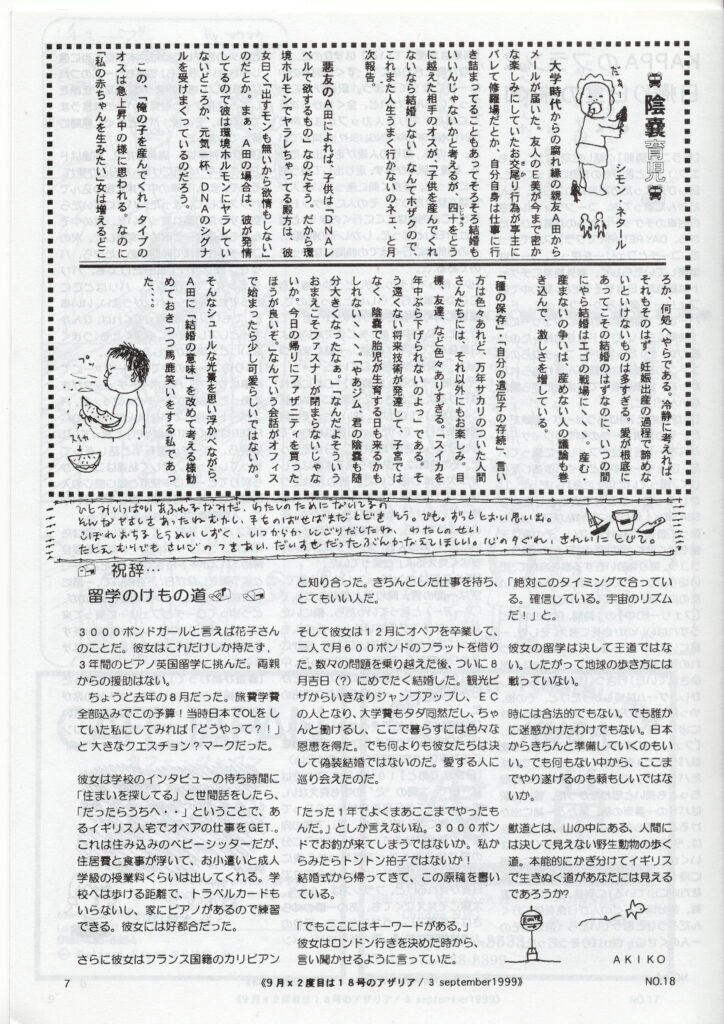 陰嚢育児
シモン・ネタール
たぁ!
大学時代からの腐れ縁の親友A田から
メールが届いた。友人のE美が今まで密か
な楽しみにしていたお交尾り行為が亭主に
バレて修羅場だとか、自分自身は仕事に行
き詰まってることもあってそろそろ結婚も
いいんじゃないかと考えるが、四十をとう
に越えた相手のオスが、「子供を産んでくれ
ないなら結婚しない」なんてホザクので、
これまた人生うまく行かないのネェ、と月
次報告。
悪友のA田によれば、子供は「DNAレ
ベルで欲するもの」なのだそう。だから環
境ホルモンでヤラレちゃってる殿方は、彼
女曰く「出すモンも無いから欲情もしない」
のだとか。まぁ、A田の場合は、彼が発情
してるので彼は環境ホルモンにヤラレてい
ないどころか、元気一杯、DNAのシグナ
ルを受けまくっているのだろう。
この、「俺の子を産んでくれ」タイプの
オスは急上昇中の様に思われる。なのに
「私の赤ちゃんを生みたい」女は増えるどこ
ろか、何処へやらである。冷静に考えれば
それもそのはず、妊娠出産の過程で諦めな
いといけないものは多すぎる。愛が根底に
あってこその結婚のはずなのに、いつの間
にやら結婚はエゴの戦場に﹑﹑﹑。産む・
産まないの争いは、産めない人の議論も巻
き込んで、激しさを増している。
「種の保存」・「自分の遺伝子の存続」、言い
方は色々あれど、万年サカリのついた人間
さんたちには、それ以外にもお楽しみ。目
標、友達、など色々ありすぎる。「スイカを
年中ぶら下げられないのよっ」である。そ
う遠くない将来技術が発達して、子宮では
なく、陰嚢で胎児が生育する日も来るかも
しれない﹑﹑﹑。「やあジム、君の陰嚢も随
分大きくなったなぁ。」「なんだよそういう
おまえこそファスナーが閉まらないじゃな
いか。今日の帰りにファザニティを買った
ほうが良いぞ。」なんていう会話がオフィス
で始まったら少し可愛らしいではないか。
そんなシュールな光景を思い浮かべながら、
A田に「結婚の意味」を改めて考える様勧
めておきつつ馬鹿笑いをする私であっ
た、、、。
プッ
スイカ
ひとみいっぱいあふれるなみだ、わたしのためにないてるの
そんなやさしさあったねむかし、手をのばせばまだとどきそう。でも。ずっととおい思い出。
こぼれおちるとうめいしずく、いつからかにごりだしたね、わたしのせい
たとえむりでもさいごのつきあい、だいすきだったぶんかなえてほしい。心の夕ぐれ、きれいにとじて。
祝辞…
留学のけもの道
3000ポンドガールと言えば花子さん
のことだ。彼女はこれだけしか持たず、
3年間のピアノ英国留学に挑んだ。両親
からの援助はない。
ちょうど去年の8月だった。旅費学費
全部込みでこの予算!当時日本でOLをし
ていた私にしてみれば「どうやって?!」
と 大きなクエスチョン?マークだった。
彼女は学校のインタビューの待ち時間に
「住まいを探してる」と世間話をしたら、
「だったらうちへ・・」ということで、あ
るイギリス人宅でオペアの仕事をGET.。
これは住み込みのベビーシッターだが、
住居費と食事が浮いて、お小遣いと成人
学級の授業料くらいは出してくれる。学
校へは歩ける距離で、トラベルカードも
いらないし、家にピアノがあるので練習
できる。彼女には好都合だった。
さらに彼女はフランス国籍のカリビアン
と知り合った。きちんとした仕事を持ち、
とてもいい人だ。
そして彼女は12月にオペアを卒業して、
二人で月600ポンドのフラットを借り
た。数々の問題を乗り越えた後、ついに8
月吉日(?)にめでたく結婚した。観光ビ
ザからいきなりジャンプアップし、EC
の人となり、大学費もタダ同然だし、ちゃ
んと働けるし、ここで暮らすには色々な
恩恵を得た。でも何よりも彼女たちは決
して偽装結婚ではないのだ。愛する人に
巡り会えたのだ。
「たった1年でよくまあここまでやったも
んだ。」としか言えない私。3000ポン
ドでお釣が来てしまうではないか。私か
らみたらトントン拍子ではないか!
結婚式から帰ってきて、この原稿を書い
ている。
「でもここにはキーワードがある。」
彼女はロンドン行きを決めた時から、
言い聞かせるように言っていた。
「絶対このタイミングで合ってい
る。確信している。宇宙のリズム
だ!」と。
彼女の留学は決して王道ではな
い。したがって地球の歩き方には
載っていない。
時には合法的でもない。でも誰か
に迷惑かけたわけでもない。日本
からきちんと準備していくのもい
い。でも何もない中から、ここま
でやり遂げるのも頼もしいではな
いか。
獣道とは、山の中にある、人間に
は決して見えない野生動物の歩く
道。本能的にかぎ分けてイギリス
で生きぬく道があなたには見える
であろうか?
ROUTE
AKIKO
7
《9月x2度目は18号のアザリア/ 3 september1999》
NO.18